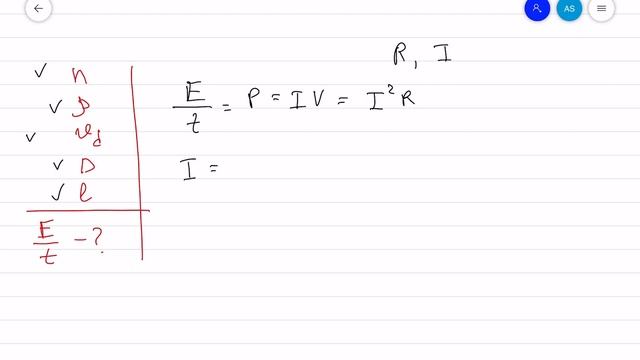 AS
R, I
✓ n
✓ ρ
✓ v_d
✓ D
✓ l
E/t - ?
E/t = P = I V = I² R
I =